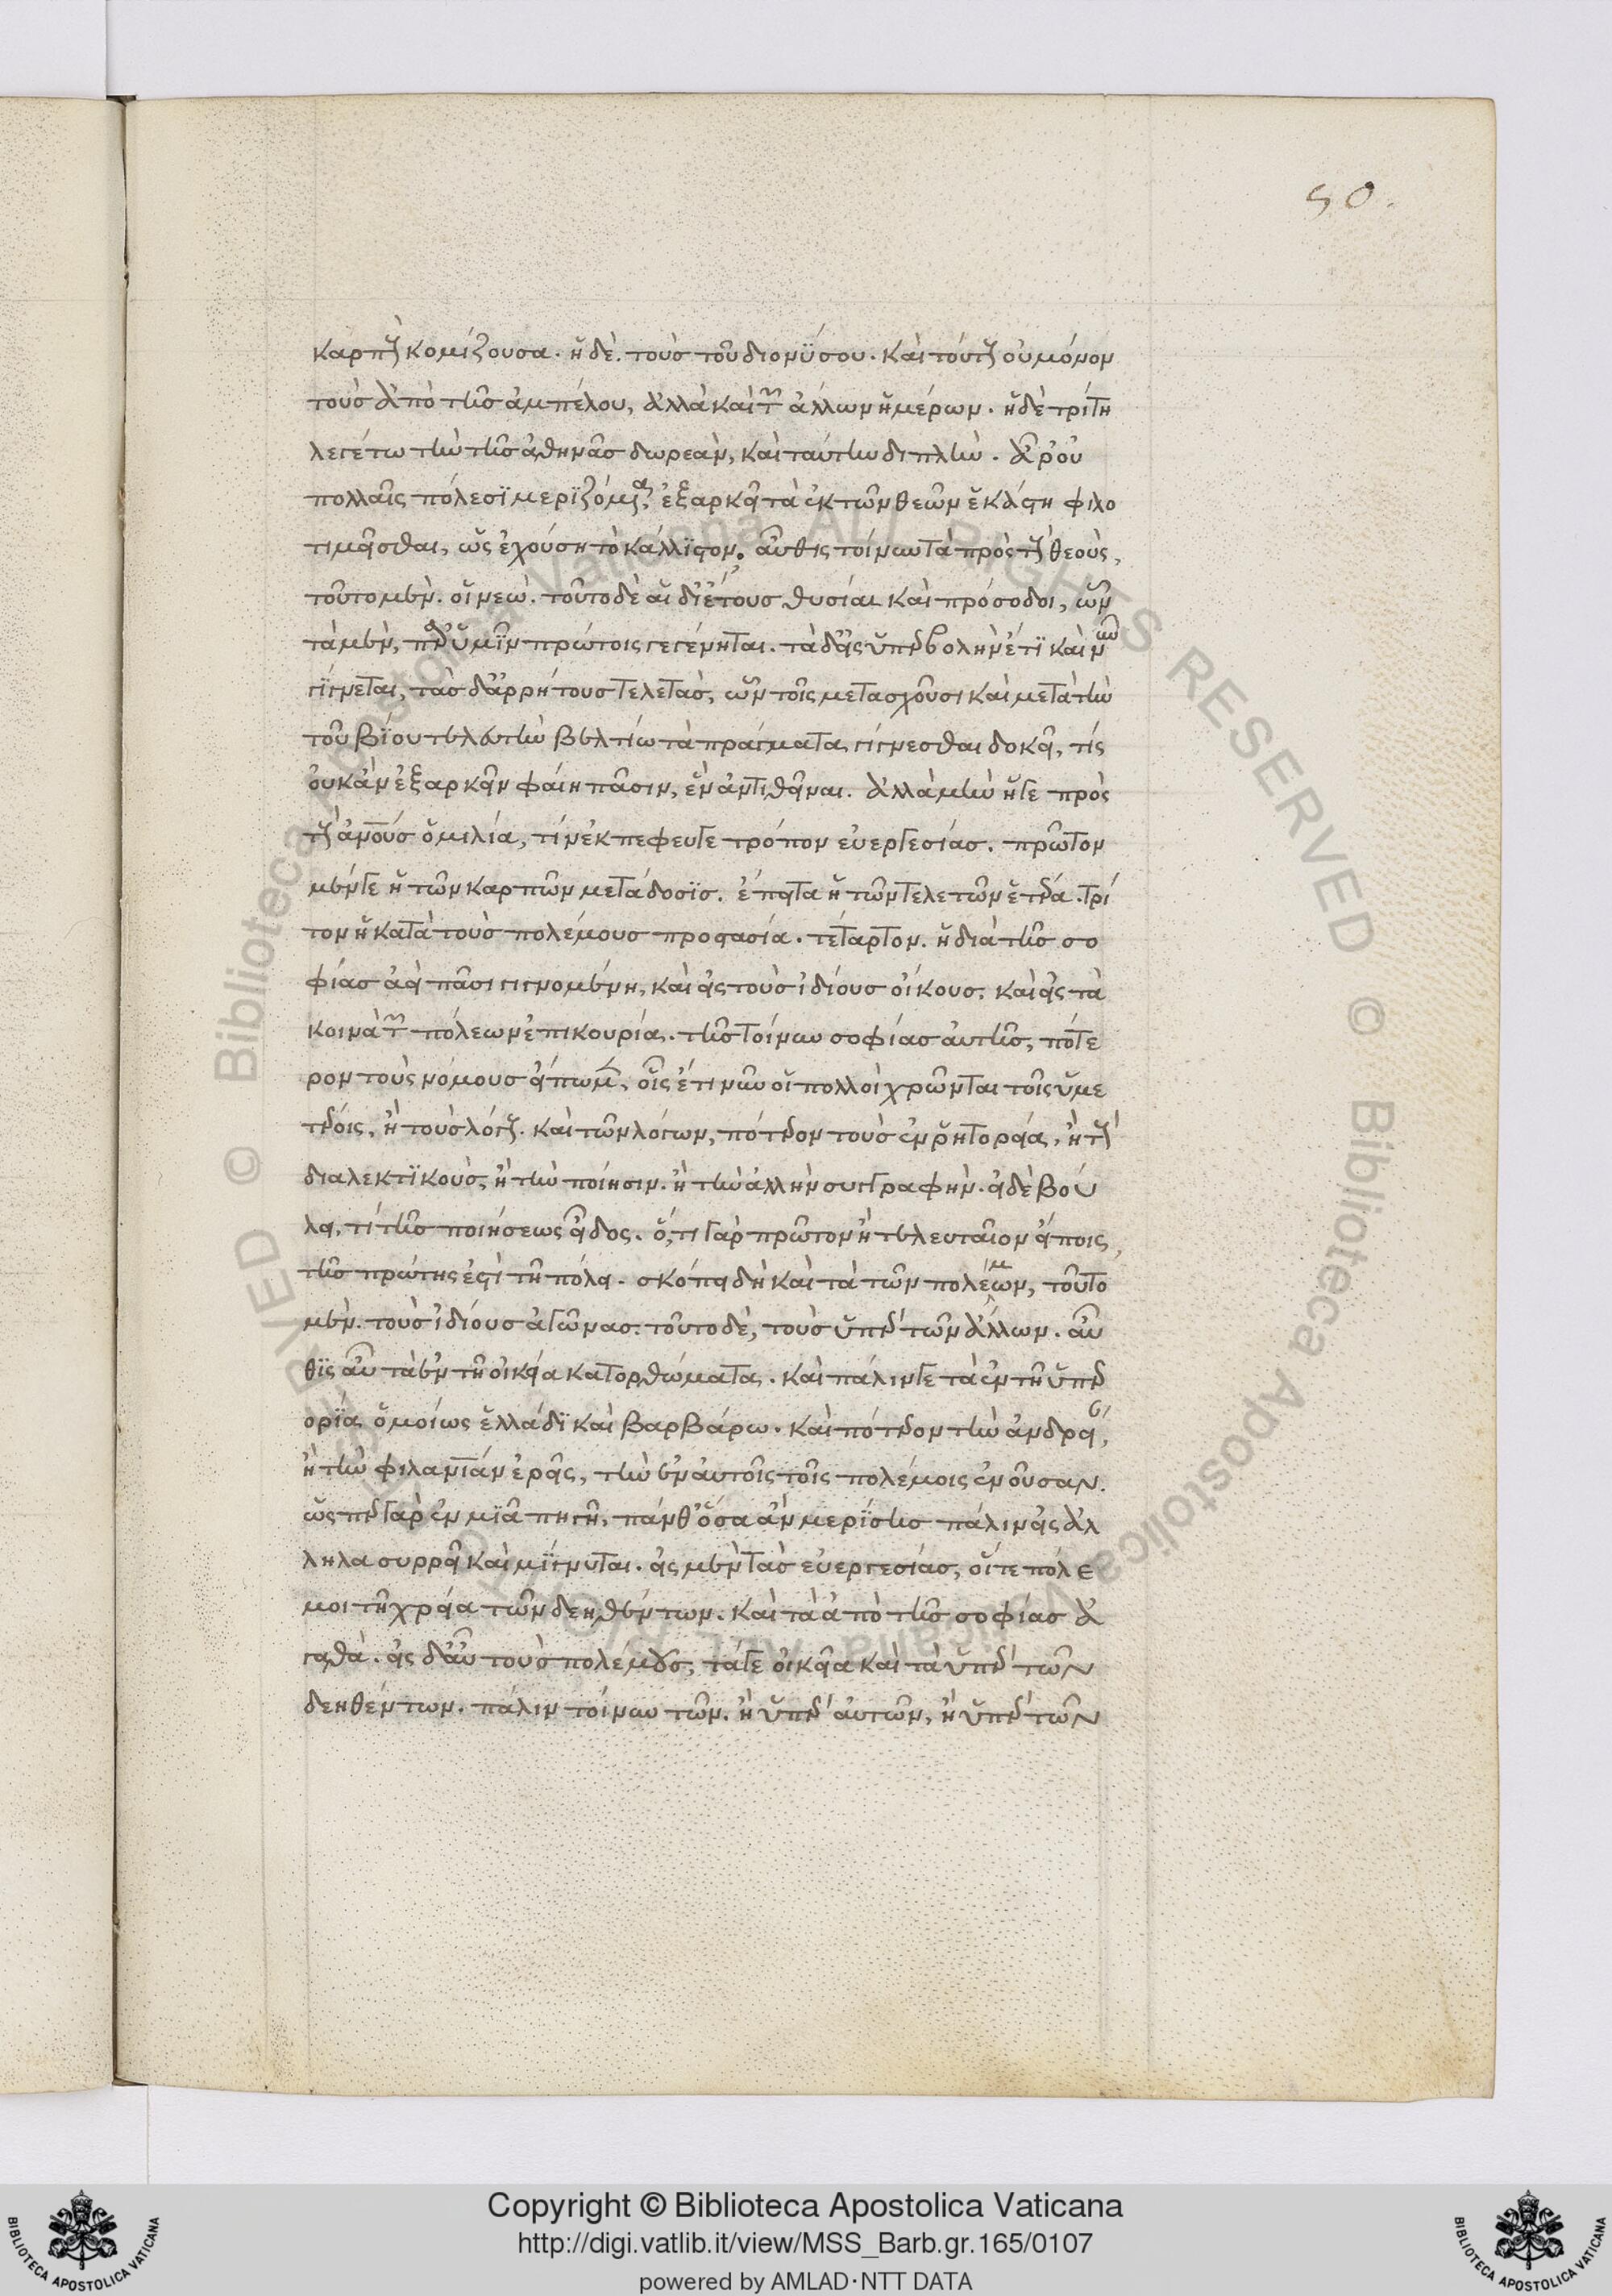 50.
καρποὺς κομίζουσα. ἡ δὲ. τοὺς τοῦ διονύσου. καὶ τούτους οὐ μόνον
τοὺς ἀπὸ τῆς ἀμπέλου, ἀλλὰ καὶ τῶν ἄλλων ἡμέρων. ἡ δὲ τρίτη
λεγέτω τὴν τῆς ἀθηνᾶς δωρεὰν, καὶ ταύτην διπλῆν. ἆρ' οὐ
πολλαῖς πόλεσι μεριζόμενα, ἐξαρκεῖ τὰ ἐκ τῶν θεῶν ἑκάστη φιλο
τιμεῖσθαι, ὡς ἐχούση τὸ κάλλιστον. αὖθις τοίνυν τὰ πρὸς τοὺς θεοὺς,
τοῦτο μὲν. οἱ νεῴ. τοῦτο δὲ αἱ δι' ἔτους θυσίαι καὶ πρόσοδοι, ὧν
τὰ μὲν, παρ' ὑμῖν πρώτοις γεγένηται. τὰ δ' εἰς ὑπερβολὴν ἔτι καὶ νῦν
γίγνεται, τὰς δ' ἀρρήτους τελετὰς, ὧν τοῖς μετασχοῦσι καὶ μετὰ τὴν
τοῦ βίου τελευτὴν βελτίω τὰ πράγματα γίγνεσθαι δοκεῖ, τίς
οὐκ ἂν ἐξαρκεῖν φαίη πᾶσιν, ἓν ἀντιθεῖναι. ἀλλὰ μὴν ἥγε πρὸς
τοὺς ἀνθρώπους ὁμιλία, τίν' ἐκπέφευγε τρόπον εὐεργεσίας. πρῶτον
μέν γε ἡ τῶν καρπῶν μετάδοσις. ἔπειτα ἡ τῶν τελετῶν ἑτέρα. τρί
τον ἡ κατὰ τοὺς πολέμους προστασία. τέταρτον. ἡ διὰ τῆς σο
φίας ἀεὶ πᾶσι γιγνομένη, καὶ εἰς τοὺς ἰδίους οἴκους, καὶ εἰς τὰ
κοινὰ τῶν πόλεων ἐπικουρία. τῆς τοίνυν σοφίας αὐτῆς, πότε
ρον τοὺς νόμους εἴπωμεν, οἷς ἔτι νῦν οἱ πολλοὶ χρῶνται τοῖς ὑμε
τέροις, ἢ τοὺς λόγους. καὶ τῶν λόγων, πότερον τοὺς ἐν ῥητορεία, ἢ τοὺς
διαλεκτικοὺς, ἢ τὴν ποίησιν. ἢ τὴν ἄλλην συγγραφήν. εἰ δὲ βού
λει, τί τῆς ποιήσεως εἶδος. ὅ,τι γὰρ πρῶτον ἢ τελευταῖον εἴποις,
τῆς πρώτης ἐστὶ τῆ πόλει. σκόπει δὴ καὶ τὰ τῶν πολέμων, τοῦτο
μὲν. τοὺς ἰδίους ἀγῶνας. τοῦτο δὲ, τοὺς ὑπὲρ τῶν ἄλλων. αὖ
θις αὖ τὰ ἐν τῆ οἰκεία κατορθώματα. καὶ πάλιν γε τὰ ἐν τῆ ὑπερ
ορία ὁμοίως ἑλλάδι καὶ βαρβάρω. καὶ πότερον τὴν ἀνδρείαν,
ἢ τὴν φιλανθρωπίαν ἐρεῖς, τὴν ἐν αὐτοῖς τοῖς πολέμοις ἐνοῦσαν.
ὥσπερ γὰρ ἐν μιᾶ πηγῆ, πάνθ' ὅσα ἂν μερίσης πάλιν εἰς ἄλ
ληλα συρρεῖ καὶ μίγνυται. εἰς μὲν τὰς εὐεργεσίας, οἵ τε πόλε
μοι τῆ χρεία τῶν δεηθέντων. καὶ τὰ ἀπὸ τῆς σοφίας ἀ
γαθὰ. εἰς δ' αὖ τοὺς πολέμους, τά γε οἰκεῖα καὶ τὰ ὑπὲρ τῶν
δεηθέντων. πάλιν τοίνυν τῶν. ἢ ὑπὲρ αὐτῶν, ἢ ὑπὲρ τῶν
© Biblioteca Apostolica Vaticana ALL RIGHTS RESERVED
Copyright © Biblioteca Apostolica Vaticana
http://digi.vatlib.it/view/MSS_Barb.gr.165/0107
powered by AMLAD·NTT DATA
BIBLIOTECA APOSTOLICA VATICANA
BIBLIOTECA APOSTOLICA VATICANA